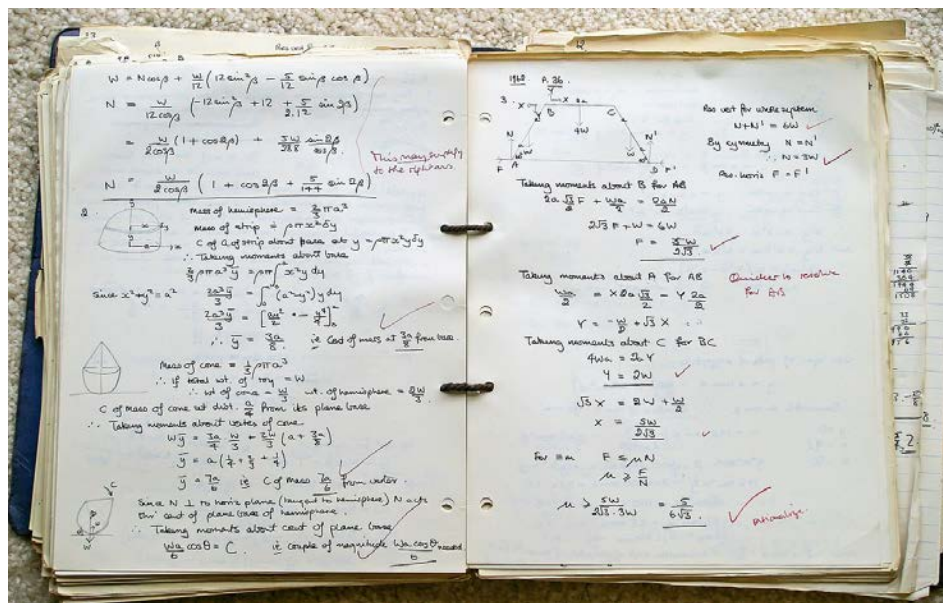 W = Ncosβ + W/12 (12 sin²β − 5/12 sinβ cosβ)
N = W/12cosβ (−12sin²β + 12 + 5/2.12 sin2β)
= W/2cosβ (1 + cos2β) + 5W/288 sin2β/cosβ.
This may simplify
to the right ans.
N = W/2cosβ (1 + cos2β + 5/144 sin2β)
2.
Mass of hemisphere = 2/3 πa³
Mass of strip = ρπx²δy
C of G of strip about base at y = ρπx²yδy
∴ Taking moments about base
2/3 ρπa³ȳ = ρπ∫x²y dy
Since x²+y² = a²
2a³ȳ/3 = ∫(a²−y²)y dy
∴ ȳ = 3a/8. ie Cent of mass at 3a/8 from base.
Mass of cone = 1/3 ρπa³
∴ If total wt. of toy = W
∴ wt of cone = W/3 wt. of hemisphere = 2W/3
C of mass of cone at dist. a/4 from its plane base
∴ Taking moments about vertex of cone
Wȳ = 3a/4 W/3 + 2W/3 (a + 3a/8)
ȳ = 7a/6 ie C of mass 7a/6 from vertex.
Since N ⊥ to horiz plane (tangent to hemisphere) N acts
thro' cent of plane base of hemisphere.
∴ Taking moments about cent of plane base
Wa/6 cosθ = C. ie couple of magnitude Wa cosθ/6 needed.
1968 P.36
3.
Res vert for whole system
N+N' = 6W
By symmetry N = N'
∴ N = 3W
Res. horiz F = F'
Taking moments about B for AB
2a √3/2 F + Wa/2 = 2aN/2
2√3 F + W = 6W
F = 5W/2√3.
Taking moments about A for AB
Quicker to resolve
for AB
Wa/2 = X2a√3/2 − Y 2a/2
Y = −W/2 + √3X
Taking moments about C for BC
4Wa = 2aY
Y = 2W
√3X = 2W + W/2
X = 5W/2√3
F ≤ μN
μ ≥ F/N
μ ≥ 5W/2√3.3W = 5/6√3.
rationalize.